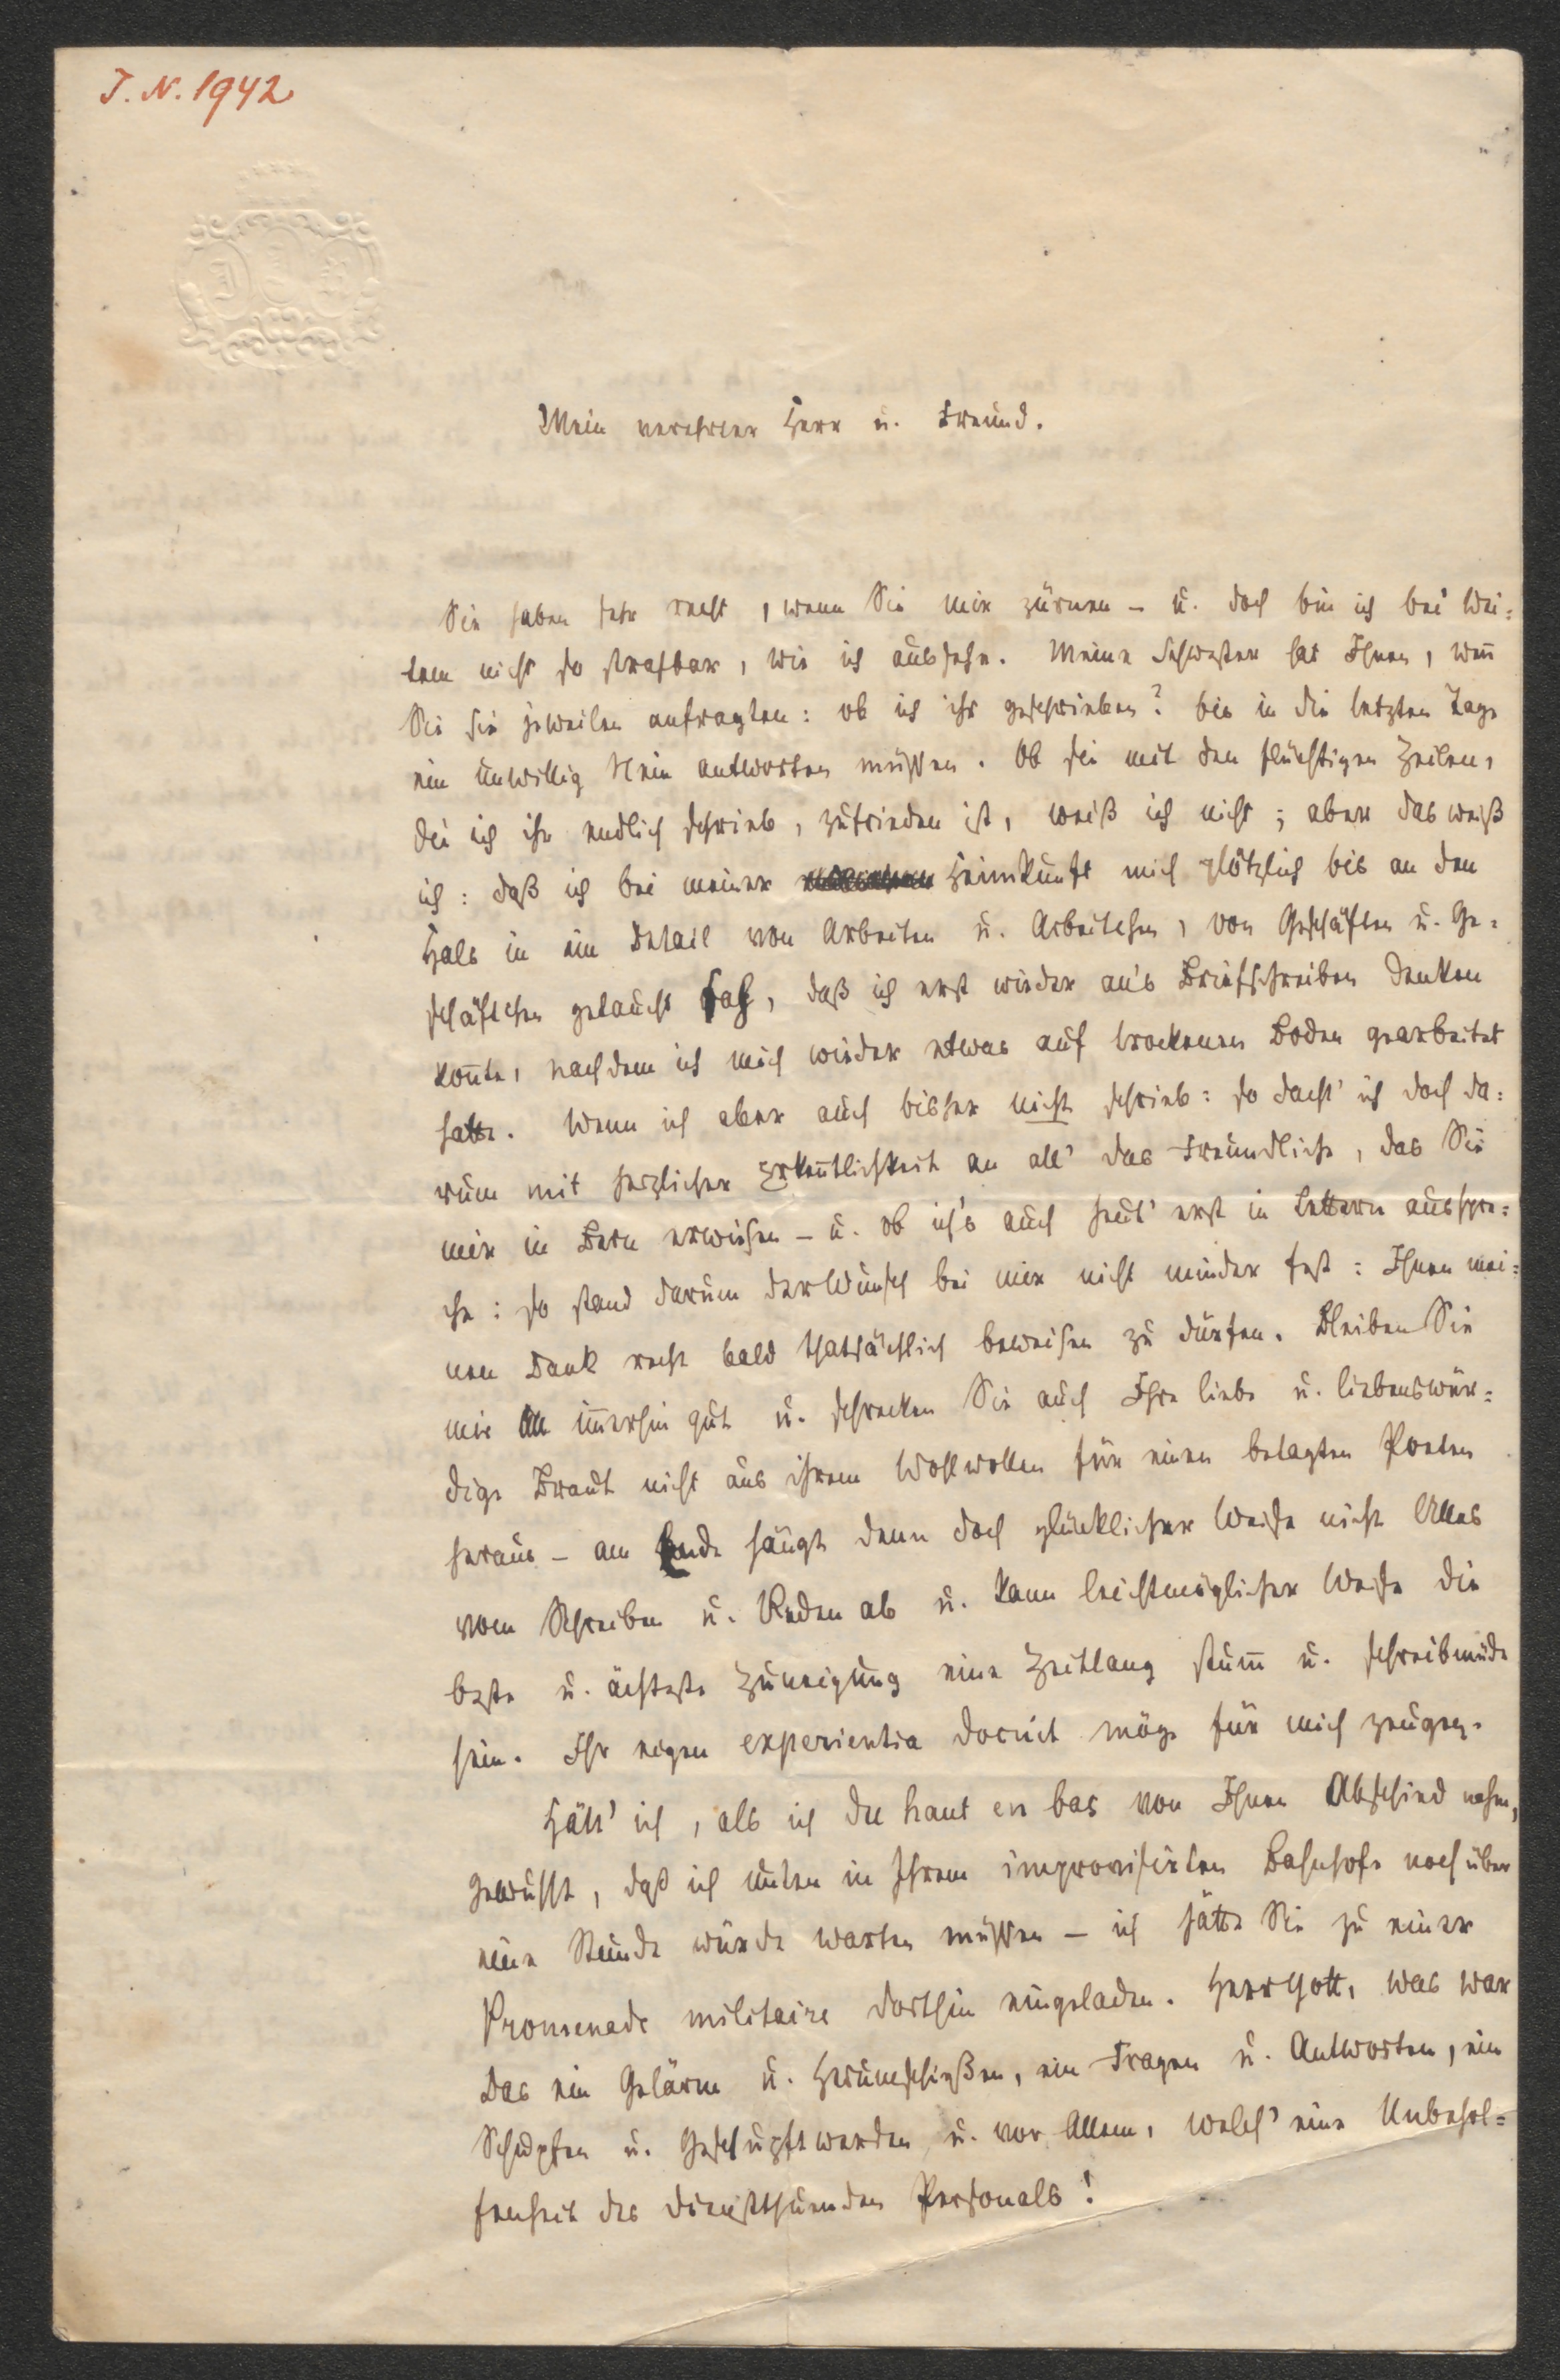 J. N. 1942
Mein verehrter Herr u. Freund.
Sie haben sehr recht, wenn Sie mir zürnen – u. doch bin ich bei Wei=
tem nicht so strafbar, wie ich aussehe. Meine Schwester hat Ihnen, weñ
Sie sie jeweilen anfragten: ob ich ihr geschrieben? bis in die letzten Tage
ein unwillig Nein antworten müssen. Ob sie mit den flüchtigen Zeilen,
die ich ihr endlich schrieb, zufrieden ist, weiß ich nicht; aber das weiß
ich: daß ich bei meiner Heimkunft mich plötzlich bis an den
Hals in ein Detail von Arbeiten u. Arbeitchen, von Geschäften u. Ge=
schäftchen getaucht sah, daß ich erst wieder an's Briefschreiben denken
koñte, nachdem ich mich wieder etwas auf trockenen Boden gearbeitet
hatte. Wenn ich aber auch bisher nicht schrieb: so dacht' ich doch da=
rum mit herzlicher Erkeñtlichkeit an all' das Freundliche, das Sie
mir in Bern erwiesen – u. ob ich's auch heut' erst in Lettern ausspre=
che: so stand darum der Wunsch bei mir nicht minder fest: Ihnen mei=
nen Dank recht bald thatsächlich beweisen zu dürfen. Bleiben Sie
mir im̃erhin gut u. schrecken Sie auch Ihre liebe u. liebenswür=
dige Braut nicht aus ihrem Wohlwollen für einen betagten Poeten
heraus – am Ende hängt denn doch glücklicher Weise nicht Alles
vom Schreiben u. Reden ab u. kann leichtmöglicher Weise die
beste u. ächteste Zuneigung eine Zeitlang stum̃ u. schreibmüde
sein. Ihr eigen experientia docuit möge für mich zeugen.
Hätt' ich, als ich du haut en bas von Ihnen Abschied nahm,
gewusst, daß ich unten in Ihrem improvisirten Bahnhofe noch über
eine Stunde würde warten müssen – ich hätte Sie zu einer
Promenade militaire dorthin eingeladen. Herr Gott, was war
das ein Gelärm u. Herumschießen, ein Fragen u. Antworten, ein
Schupfen u. Geschupftwerden u. vor Allem, welch' eine Unbehol=
fenheit des dienstthuenden Personals!